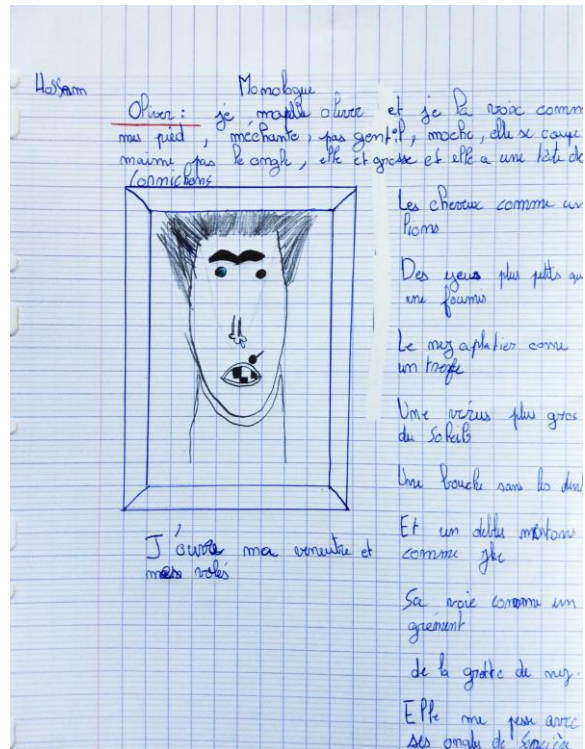 Hossam
Monologue
Oliver : je mapelle oliver et je la voix comm
mes pied, méchante, pas gentil, moche, elle se coupe
maime pas le ongle, elle et grosse et elle a une tête de
Cornichons
Les cheveux comme un
lions
Des yeus plus petits qu
une fourmis
Le nez aplatier come
un trefe
Une vérus plus gros
du soleils
Une bouche sans les dent
Et un deble montons
comme
Sa voie comme un
grément
de la grotte de nez.
Elle me pesse avec
ses ongles de Sorcière
J'ouvre ma veneutre et
mes volés